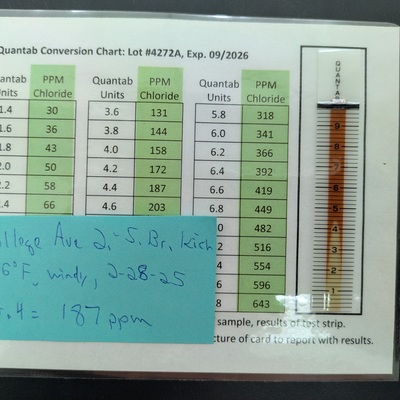 Quantab Conversion Chart: Lot #4272A, Exp. 09/2026
uantab PPM Quantab PPM Quantab PPM
Units Chloride Units Chloride Units Chloride
1.4 30 3.6 131 5.8 318
1.6 36 3.8 144 6.0 341
1.8 43 4.0 158 6.2 366
2.0 50 4.2 172 6.4 392
2.2 58 4.4 187 6.6 419
2.4 66 4.6 203 6.8 449
.0 482
.2 516
.4 554
.6 596
.8 643
ollege Ave 2, -S. Br. Kish
6°F, windy, 2-28-25
.4 = 187 ppm
sample, results of test strip.
cture of card to report with results.
QUANTAB
9
8
7
6
5
4
3
2
1